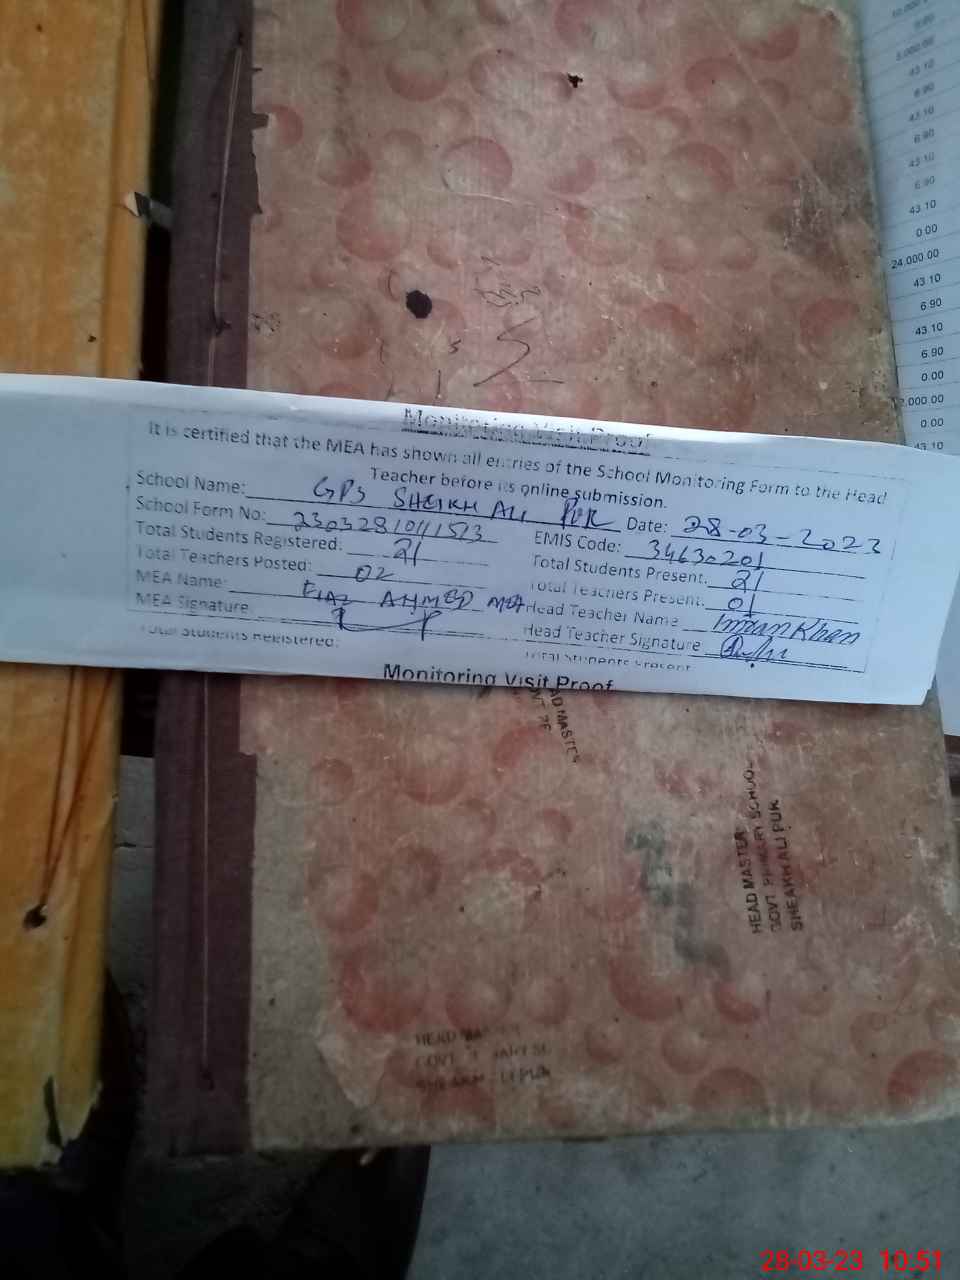 Monitoring Visit Proof
It is certified that the MEA has shown all entries of the School Monitoring Form to the Head
Teacher before its online submission.
School Name: GPS SHEIKH ALI PUR Date: 28-03-2023
School Form No: EMIS Code: 34630201
Total Students Registered: 21 Total Students Present: 21
Total Teachers Posted: 02 Total Teachers Present: 01
MEA Name: AHMED MEA Head Teacher Name Imran Khan
MEA Signature: Head Teacher Signature
Total Students Registered: Total Students Present
Monitoring Visit Proof
HEAD MASTER
GOVT
HEAD MASTER
GOVT PRIMARY SCHOOL
SHEAKH ALI PUR
HEAD
GOVT
10.000
0.00
5.000.00
43.10
6.90
43.10
6.90
43.10
6.90
43.10
0.00
24,000.00
43.10
6.90
43.10
6.90
0.00
2,000.00
0.00
43.10
28-03-23 10:51